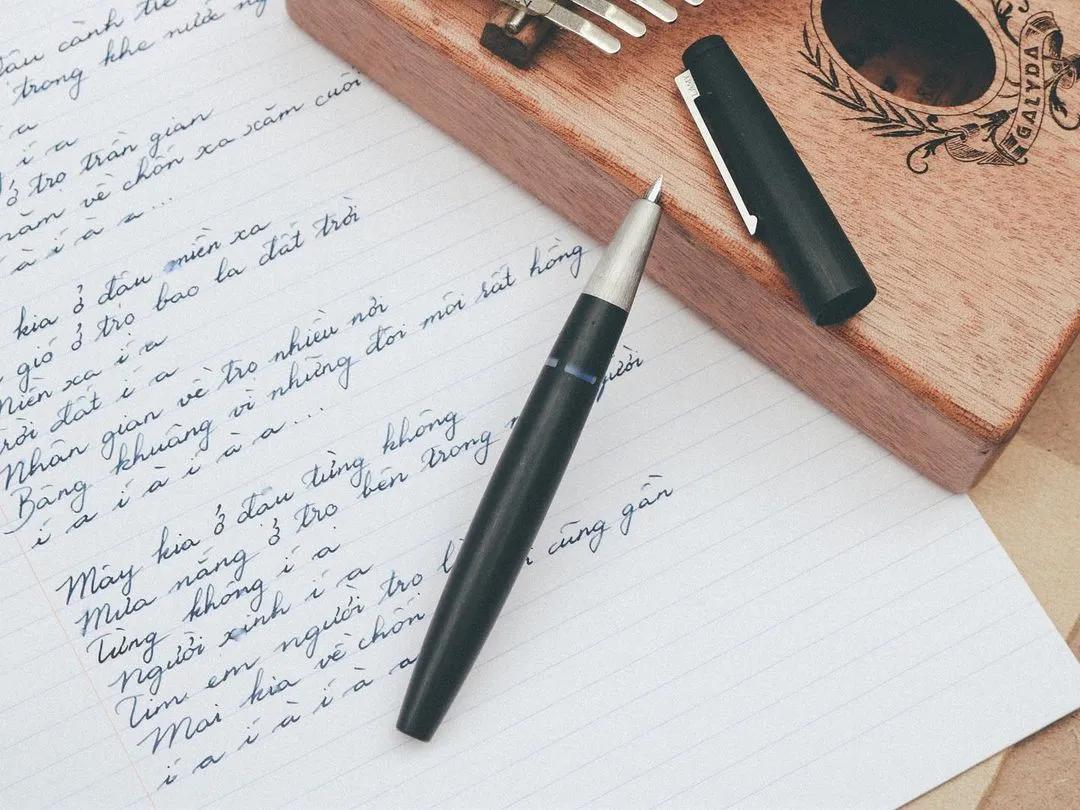 đâu cành
trong khe nước
a
í a
ở trọ trần gian
năm về chốn xa xăm cuối
à í à a ...
kia ở đậu miền xa
gió ở trọ bao la đất trời
Miền xa í a
trời đất í a
Nhân gian về trọ nhiều nơi
Bâng khuâng vì những đôi môi rất hồng
í a í à í à a ...
Mây kia ở đậu từng không
Mưa nắng ở trọ bên trong
Từng không í ạ
Người xinh í a
Tim em người trọ cũng gần
Mai kia về chốn
í a í à í à a
LAMY
GALYDA